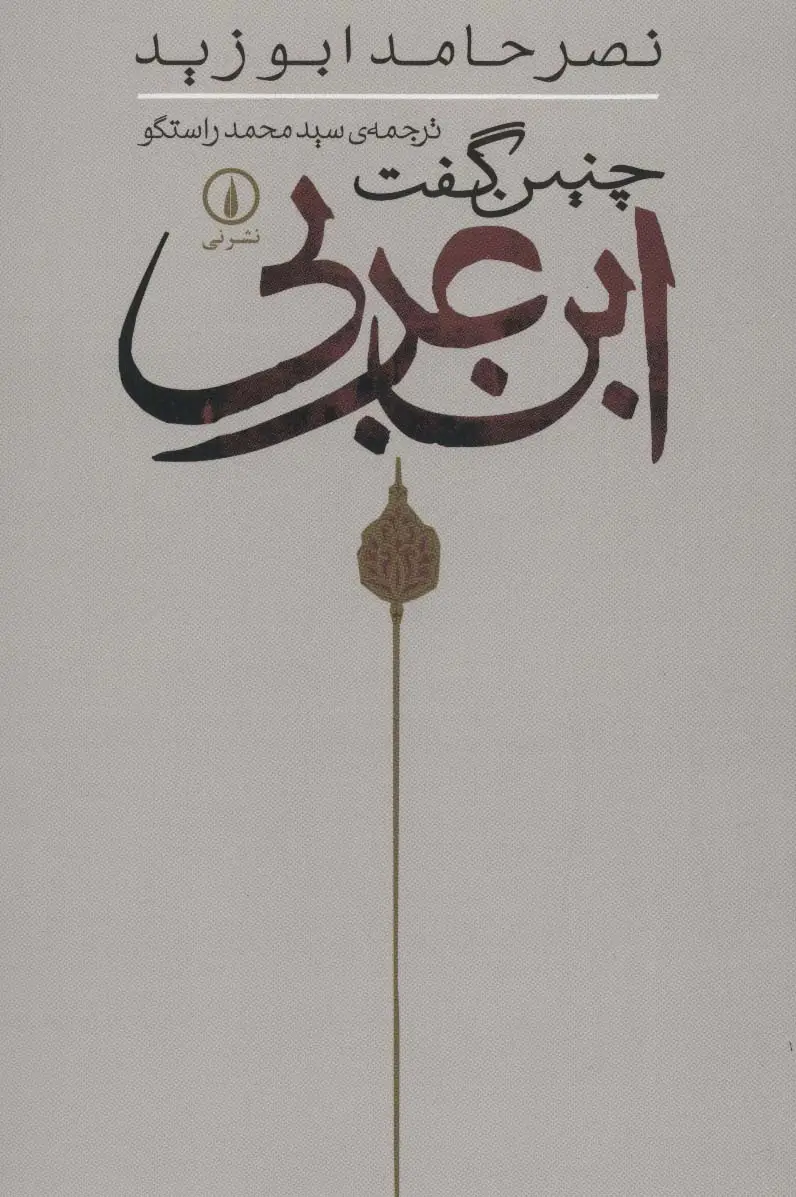 نصر حامد ابو زید
ترجمه‌ی سید محمد راستگو
چنین گفت
ابن عربی
نشر نی